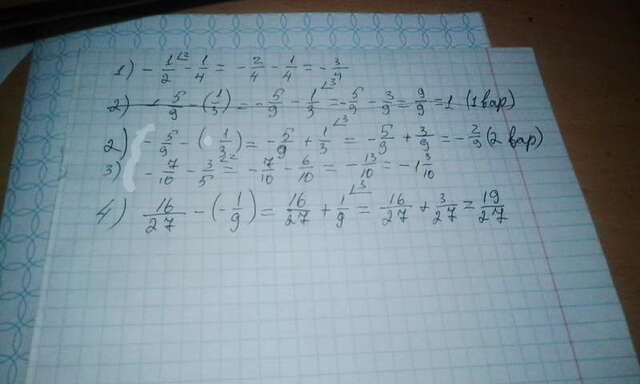 1) - 1/2 - 1/4 = - 2/4 - 1/4 = - 3/4
2) - 5/9 - (1/3) = - 5/9 - 1/3 = - 5/9 - 3/9 = 9/9 = 1 (1 вар)
2) - 5/9 - ( 1/3) = - 5/9 + 1/3 = - 5/9 + 3/9 = - 2/9 (2 вар)
3) - 7/10 - 3/5 = - 7/10 - 6/10 = - 13/10 = - 1 3/10
4) 16/27 - (- 1/9) = 16/27 + 1/9 = 16/27 + 3/27 = 19/27